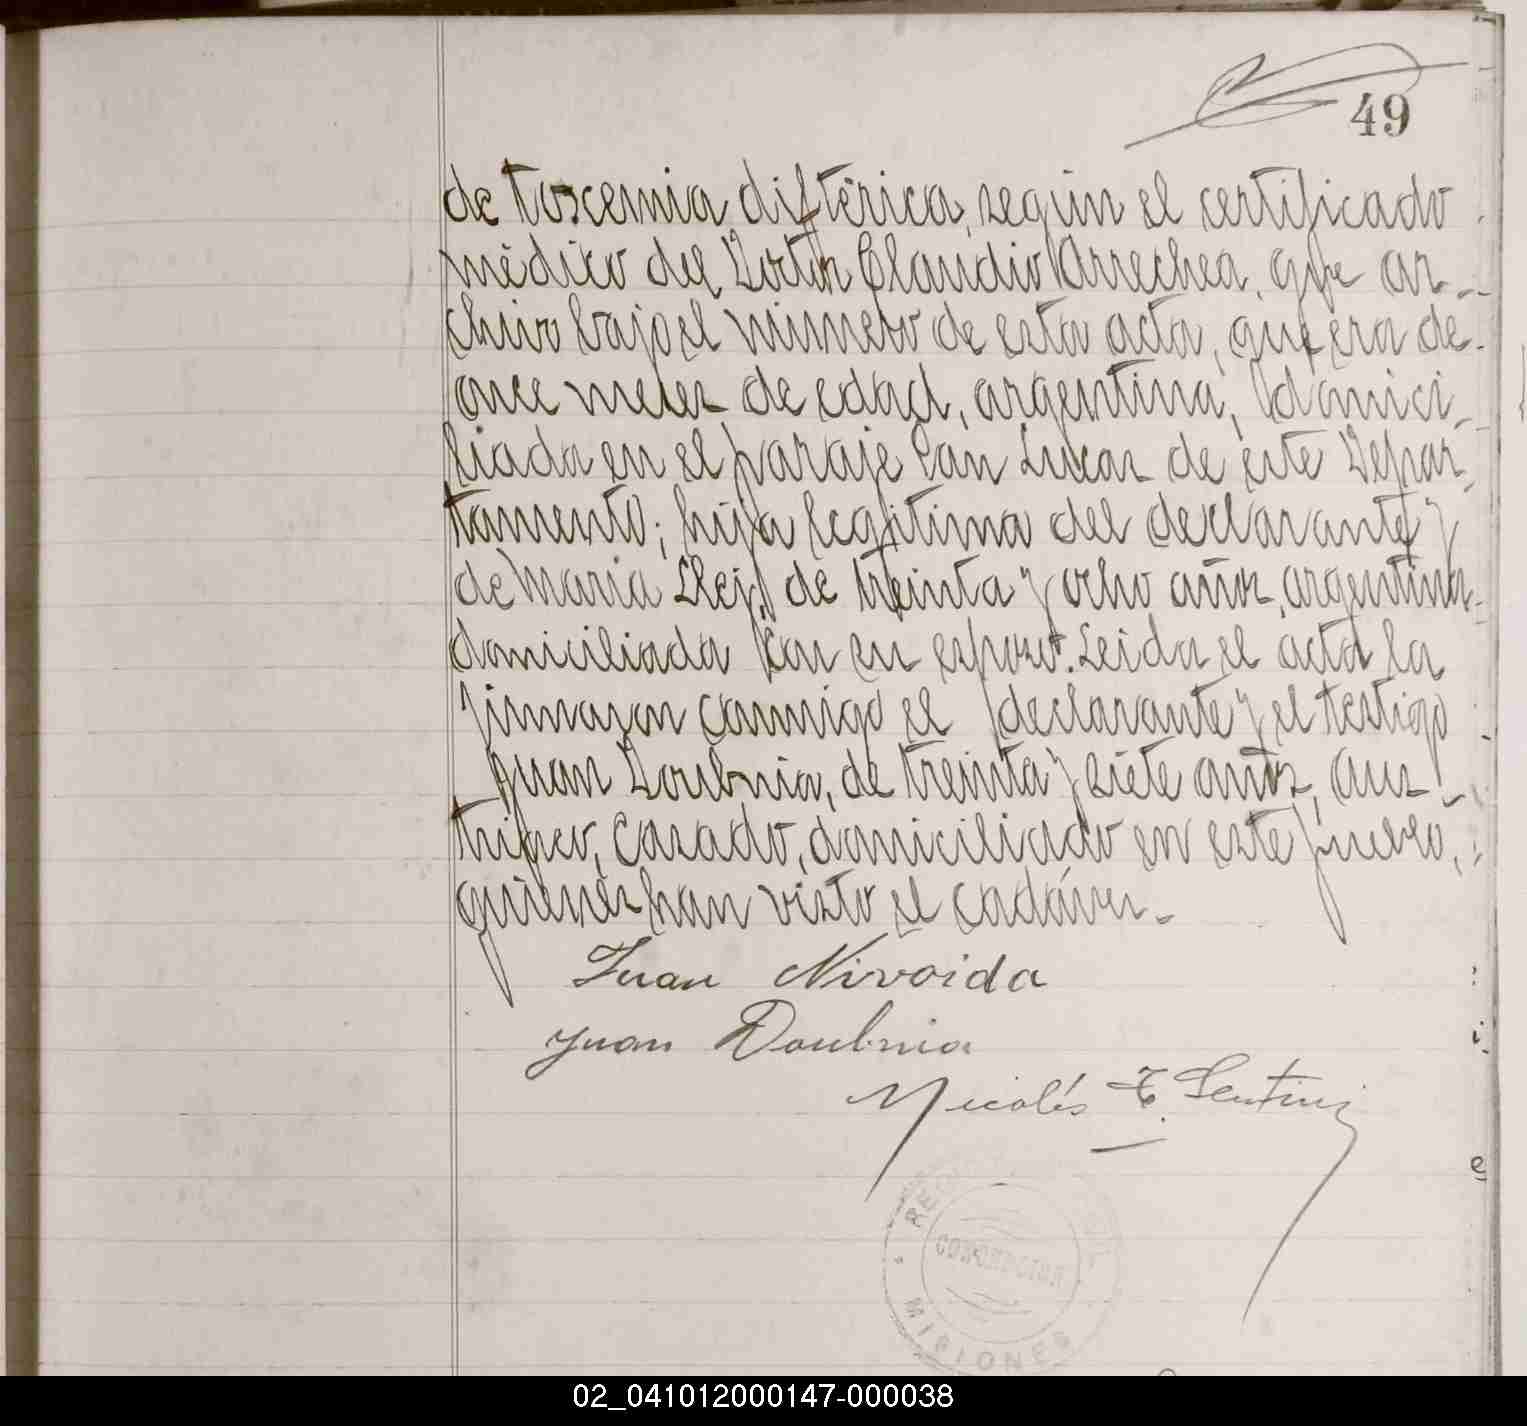 49
de toxcemia diftérica, según el certificado
médico del Doctor Claudio Arrechea, que ar-
chivo bajo el número de esta acta, que era de
once meses de edad, argentina, domici-
liada en el paraje San Lucas de este Depar-
tamento; hija legítima del declarante y
de Maria de treinta y ocho años, argentina,
domiciliada con su esposo. Leida el acta la
firmaron conmigo el declarante y el testigo
Juan Doubnia, de treinta y siete años, aus-
triaco, casado, domiciliado en este pueblo,
quienes han visto el cadáver.-
Juan Nivoida
Juan Doubnia
Nicolás F. Sentini
CONCEPCION
MISIONES
02_041012000147-000038